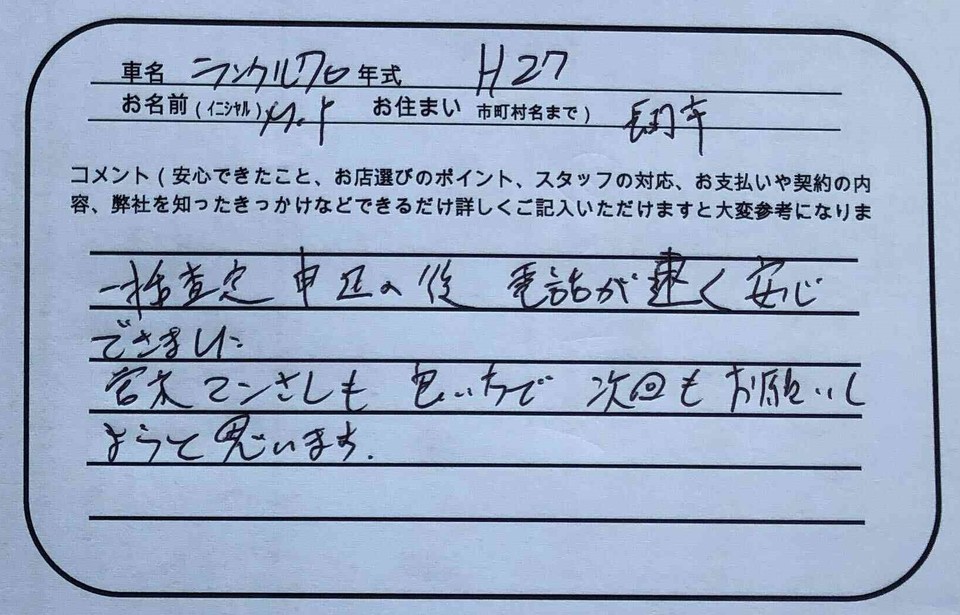 車名 ランクル70 年式 H27
お名前(イニシャル) M.Y お住まい 市町村名まで) 長岡市
コメント(安心できたこと、お店選びのポイント、スタッフの対応、お支払いや契約の内
容、弊社を知ったきっかけなどできるだけ詳しくご記入いただけますと大変参考になりま
一括査定 申込の後 電話が速く安心
できました
も 次回もお願いし
ようと思います.